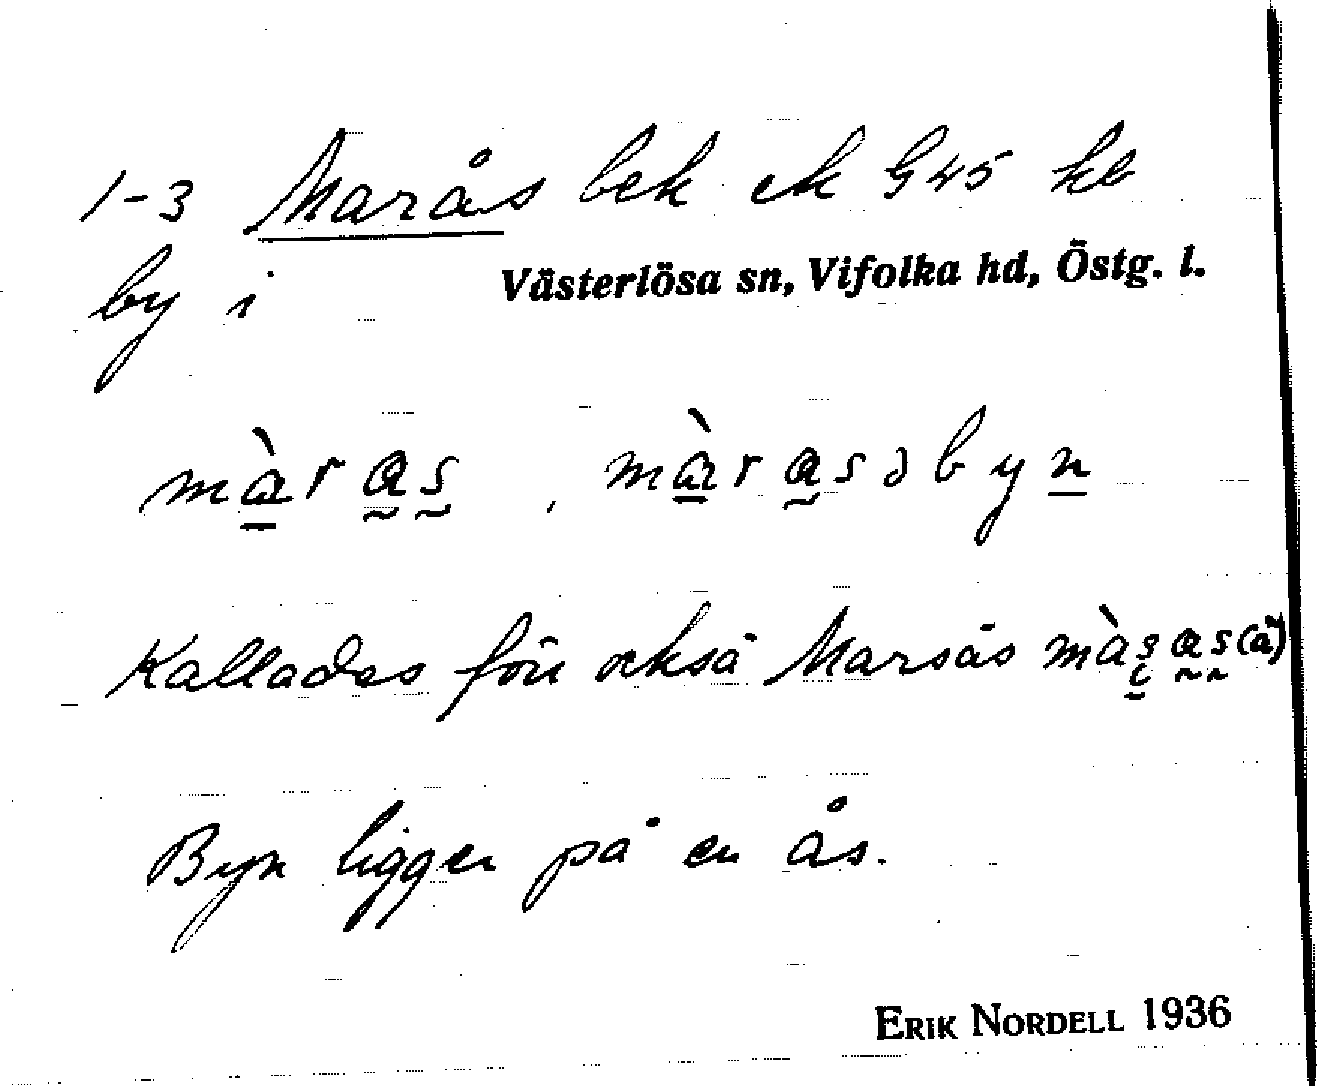 1-3 Marås bek ek G45 kb
by i Västerlösa sn, Vifolka hd, Östg. l.
màras, màrasəbyn
Kallades förr också Marsås màsas (å)
Byn ligger på en ås.
ERIK NORDELL 1936